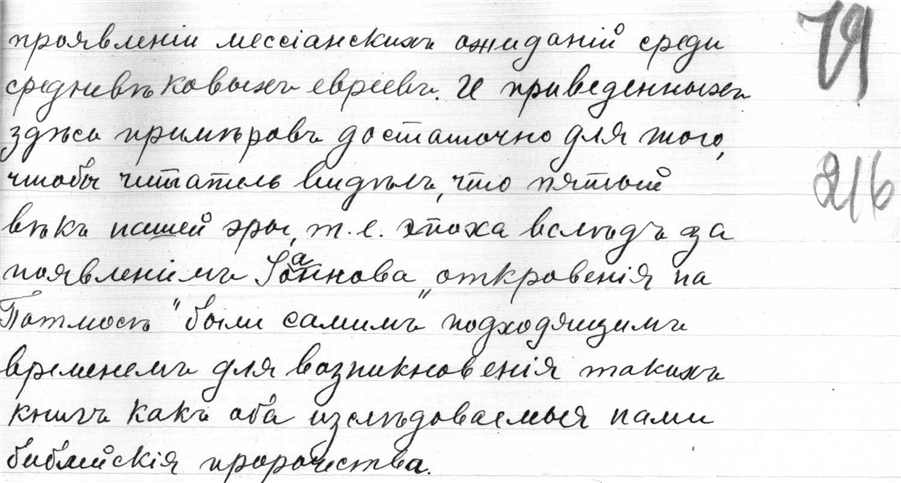 проявленіи мессіанскихъ ожиданій среди
средневѣковыхъ евреевъ. И приведенныхъ
здѣсь примѣровъ достаточно для того,
чтобы читатель видѣлъ, что пятый
вѣкъ нашей эры, т. е. эпоха вслѣдъ за
появленіемъ Іоаннова „откровенія на
Патмосѣ" были самимъ подходящимъ
временемъ для возникновенія такихъ
книгъ какъ оба изслѣдоваемыя нами
библейскія пророчества.
79
216